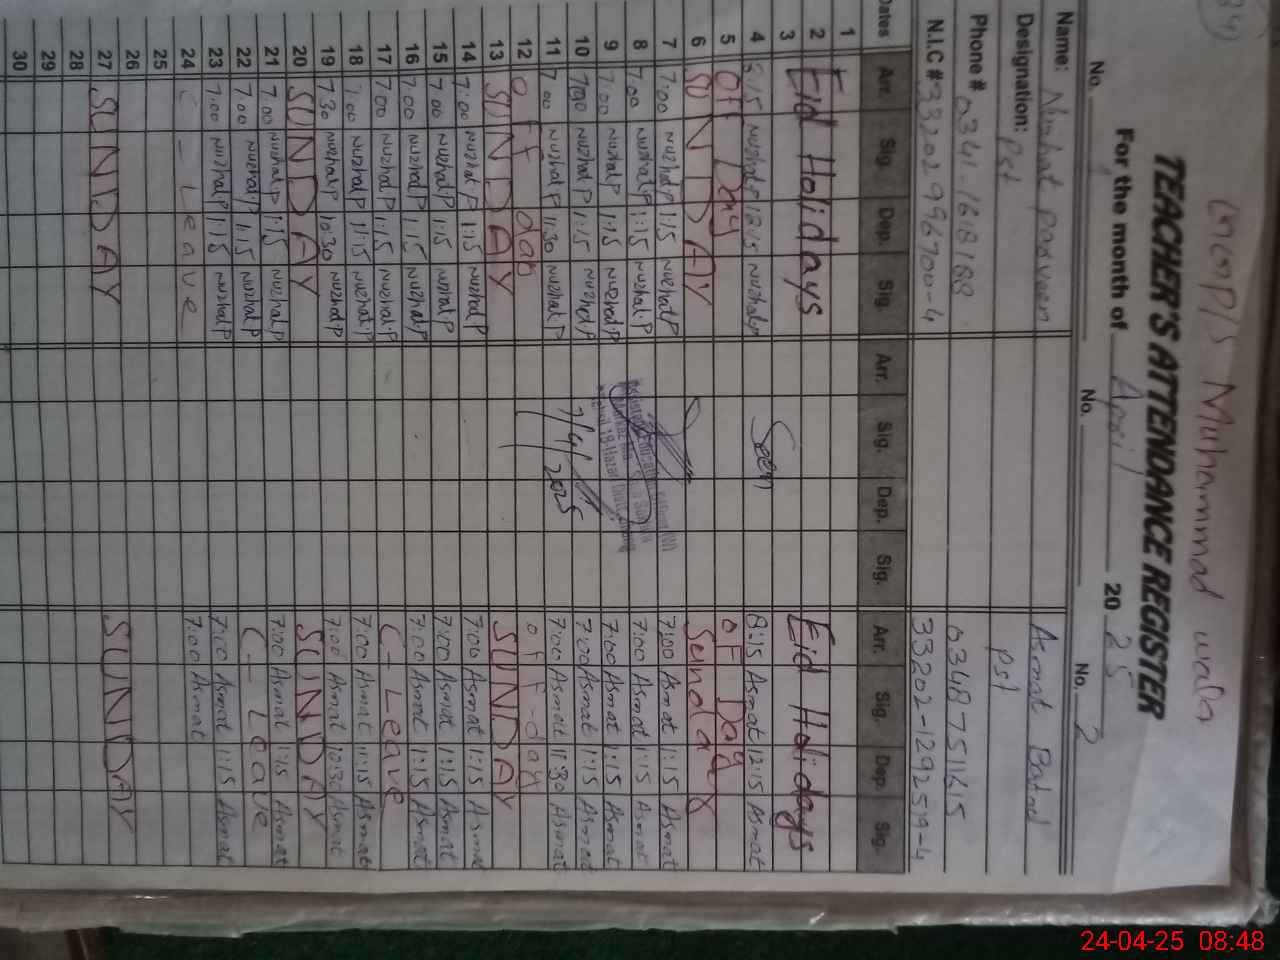 Muhammad walla
TEACHER'S ATTENDANCE REGISTER
For the month of April 2025
No. No. No. 2
Name: Nuzhat parveen Asmat Batool
Designation: pst pst
Phone # 0341-168188 03487511615
N.I.C # 33202996700-4 33202-1292519-4
Dates Arr. Sig. Dep. Sig. Arr. Sig. Dep. Sig. Arr. Sig. Dep. Sig.
1
2 Eid Holidays Eid Holidays
3
4 8:15 Nuzhat P 12:15 Nuzhat P Seen 8:15 Asmat 12:15 Asmat
5 Off Day Off Day
6 SUNDAY Sunday
7 7:00 Nuzhat P 1:15 Nuzhat P 7:00 Asmat 1:15 Asmat
8 7:00 Nuzhat P 1:15 Nuzhat P 7:00 Asmat 1:15 Asmat
9 7:00 Nuzhat P 1:15 Nuzhat P 7:00 Asmat 1:15 Asmat
10 7:00 Nuzhat P 1:15 Nuzhat P 7:00 Asmat 1:15 Asmat
11 7:00 Nuzhat P 11:30 Nuzhat P 7/4/2025 7:00 Asmat 11:30 Asmat
12 Off day off-day
13 SUNDAY SUNDAY
14 7:00 Nuzhat P 1:15 Nuzhat P 7:00 Asmat 1:15 Asmat
15 7:00 Nuzhat P 1:15 Nuzhat P 7:00 Asmat 1:15 Asmat
16 7:00 Nuzhat P 1:15 Nuzhat P 7:00 Asmat 1:15 Asmat
17 7:00 Nuzhat P 1:15 Nuzhat P C-Leave
18 7:00 Nuzhat P 11:15 Nuzhat P 7:00 Asmat 11:15 Asmat
19 7:30 Nuzhat P 10:30 Nuzhat P 7:00 Asmat 10:30 Asmat
20 SUNDAY SUNDAY
21 7:00 Nuzhat P 1:15 Nuzhat P 7:00 Asmat 1:15 Asmat
22 7:00 Nuzhat P 1:15 Nuzhat P C-Leave
23 7:00 Nuzhat P 1:15 Nuzhat P 7:00 Asmat 1:15 Asmat
24 C-Leave 7:00 Asmat
25
26
27 SUNDAY SUNDAY
28
29
30
24-04-25 08:48